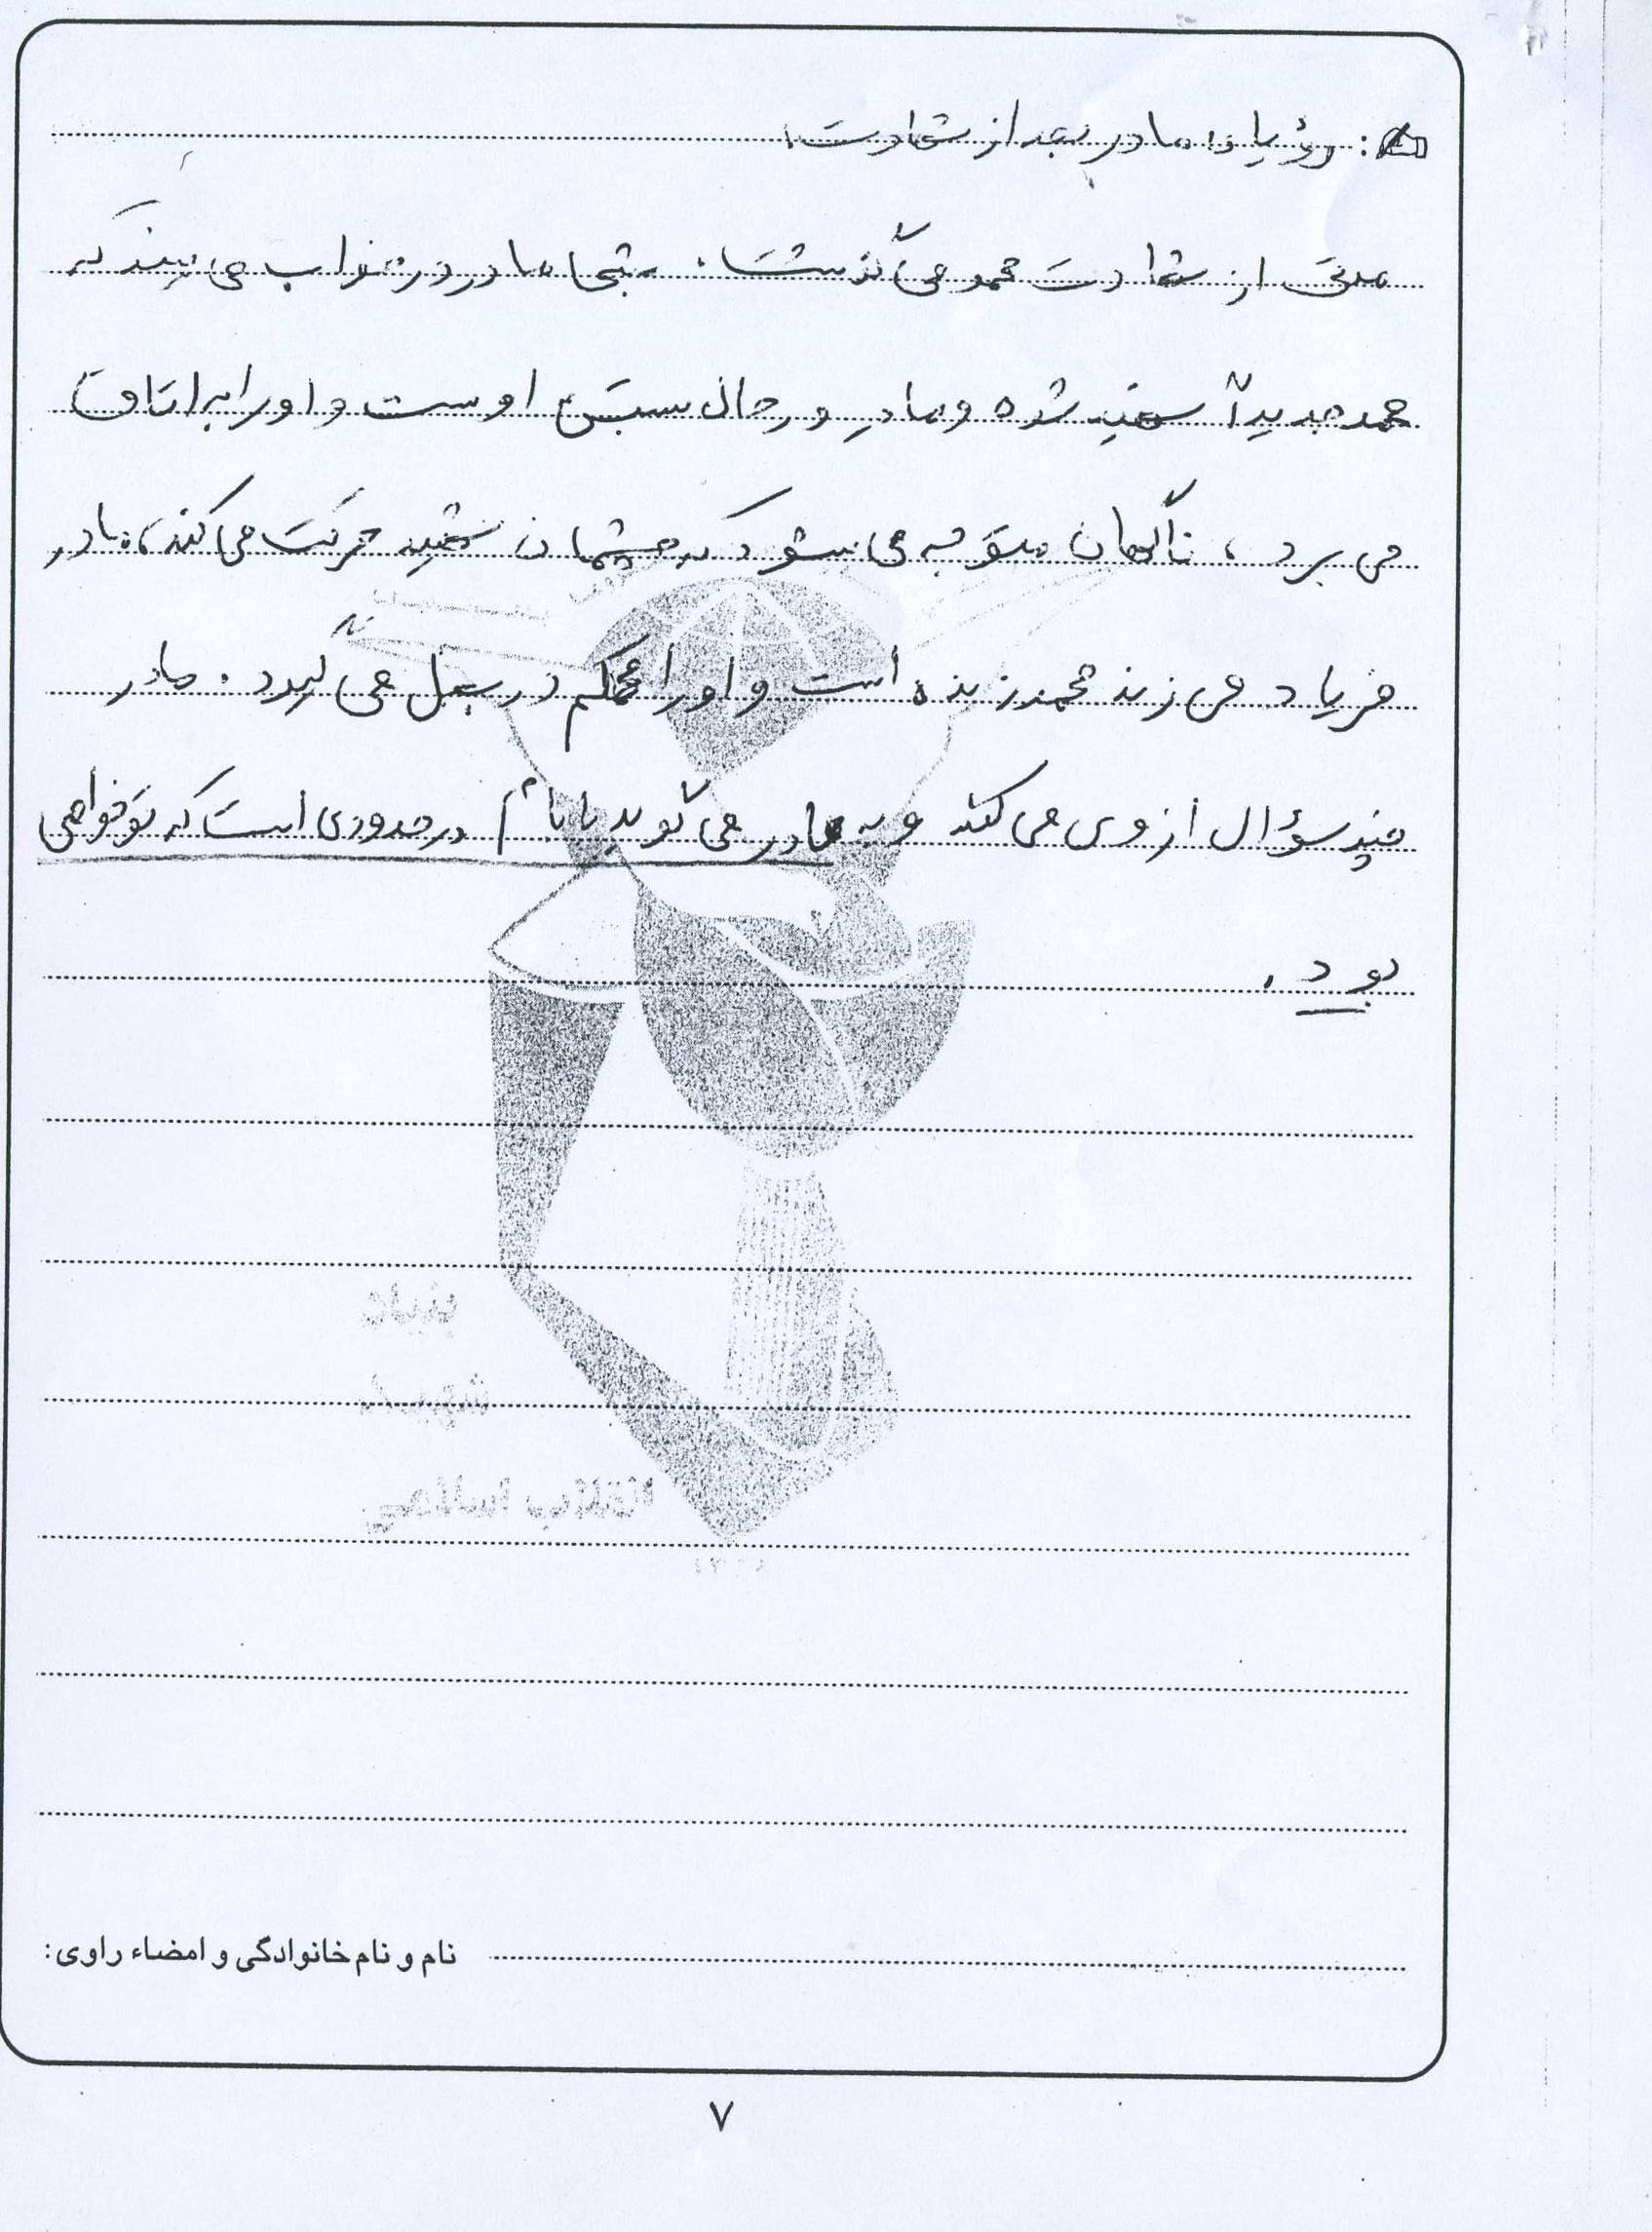 : رؤیای مادر بعد از شهادت
مدتی از شهادت محمد می گذشت. شبی مادر در خواب می بیند که
محمد جدیداً شهید شده و مادر در حال شستن اوست و او را به اتاق
می برد، ناگهان متوجه می شود که چشمان شهید حرکت می کند، مادر
فریاد می زند محمد زنده است و او را محکم در بغل می گیرد. مادر
چند سؤال از وی می کند و به مادر می گوید بابام در حدودی است که تو خواهی
بود.
نام و نام خانوادگی و امضاء راوی:
۷